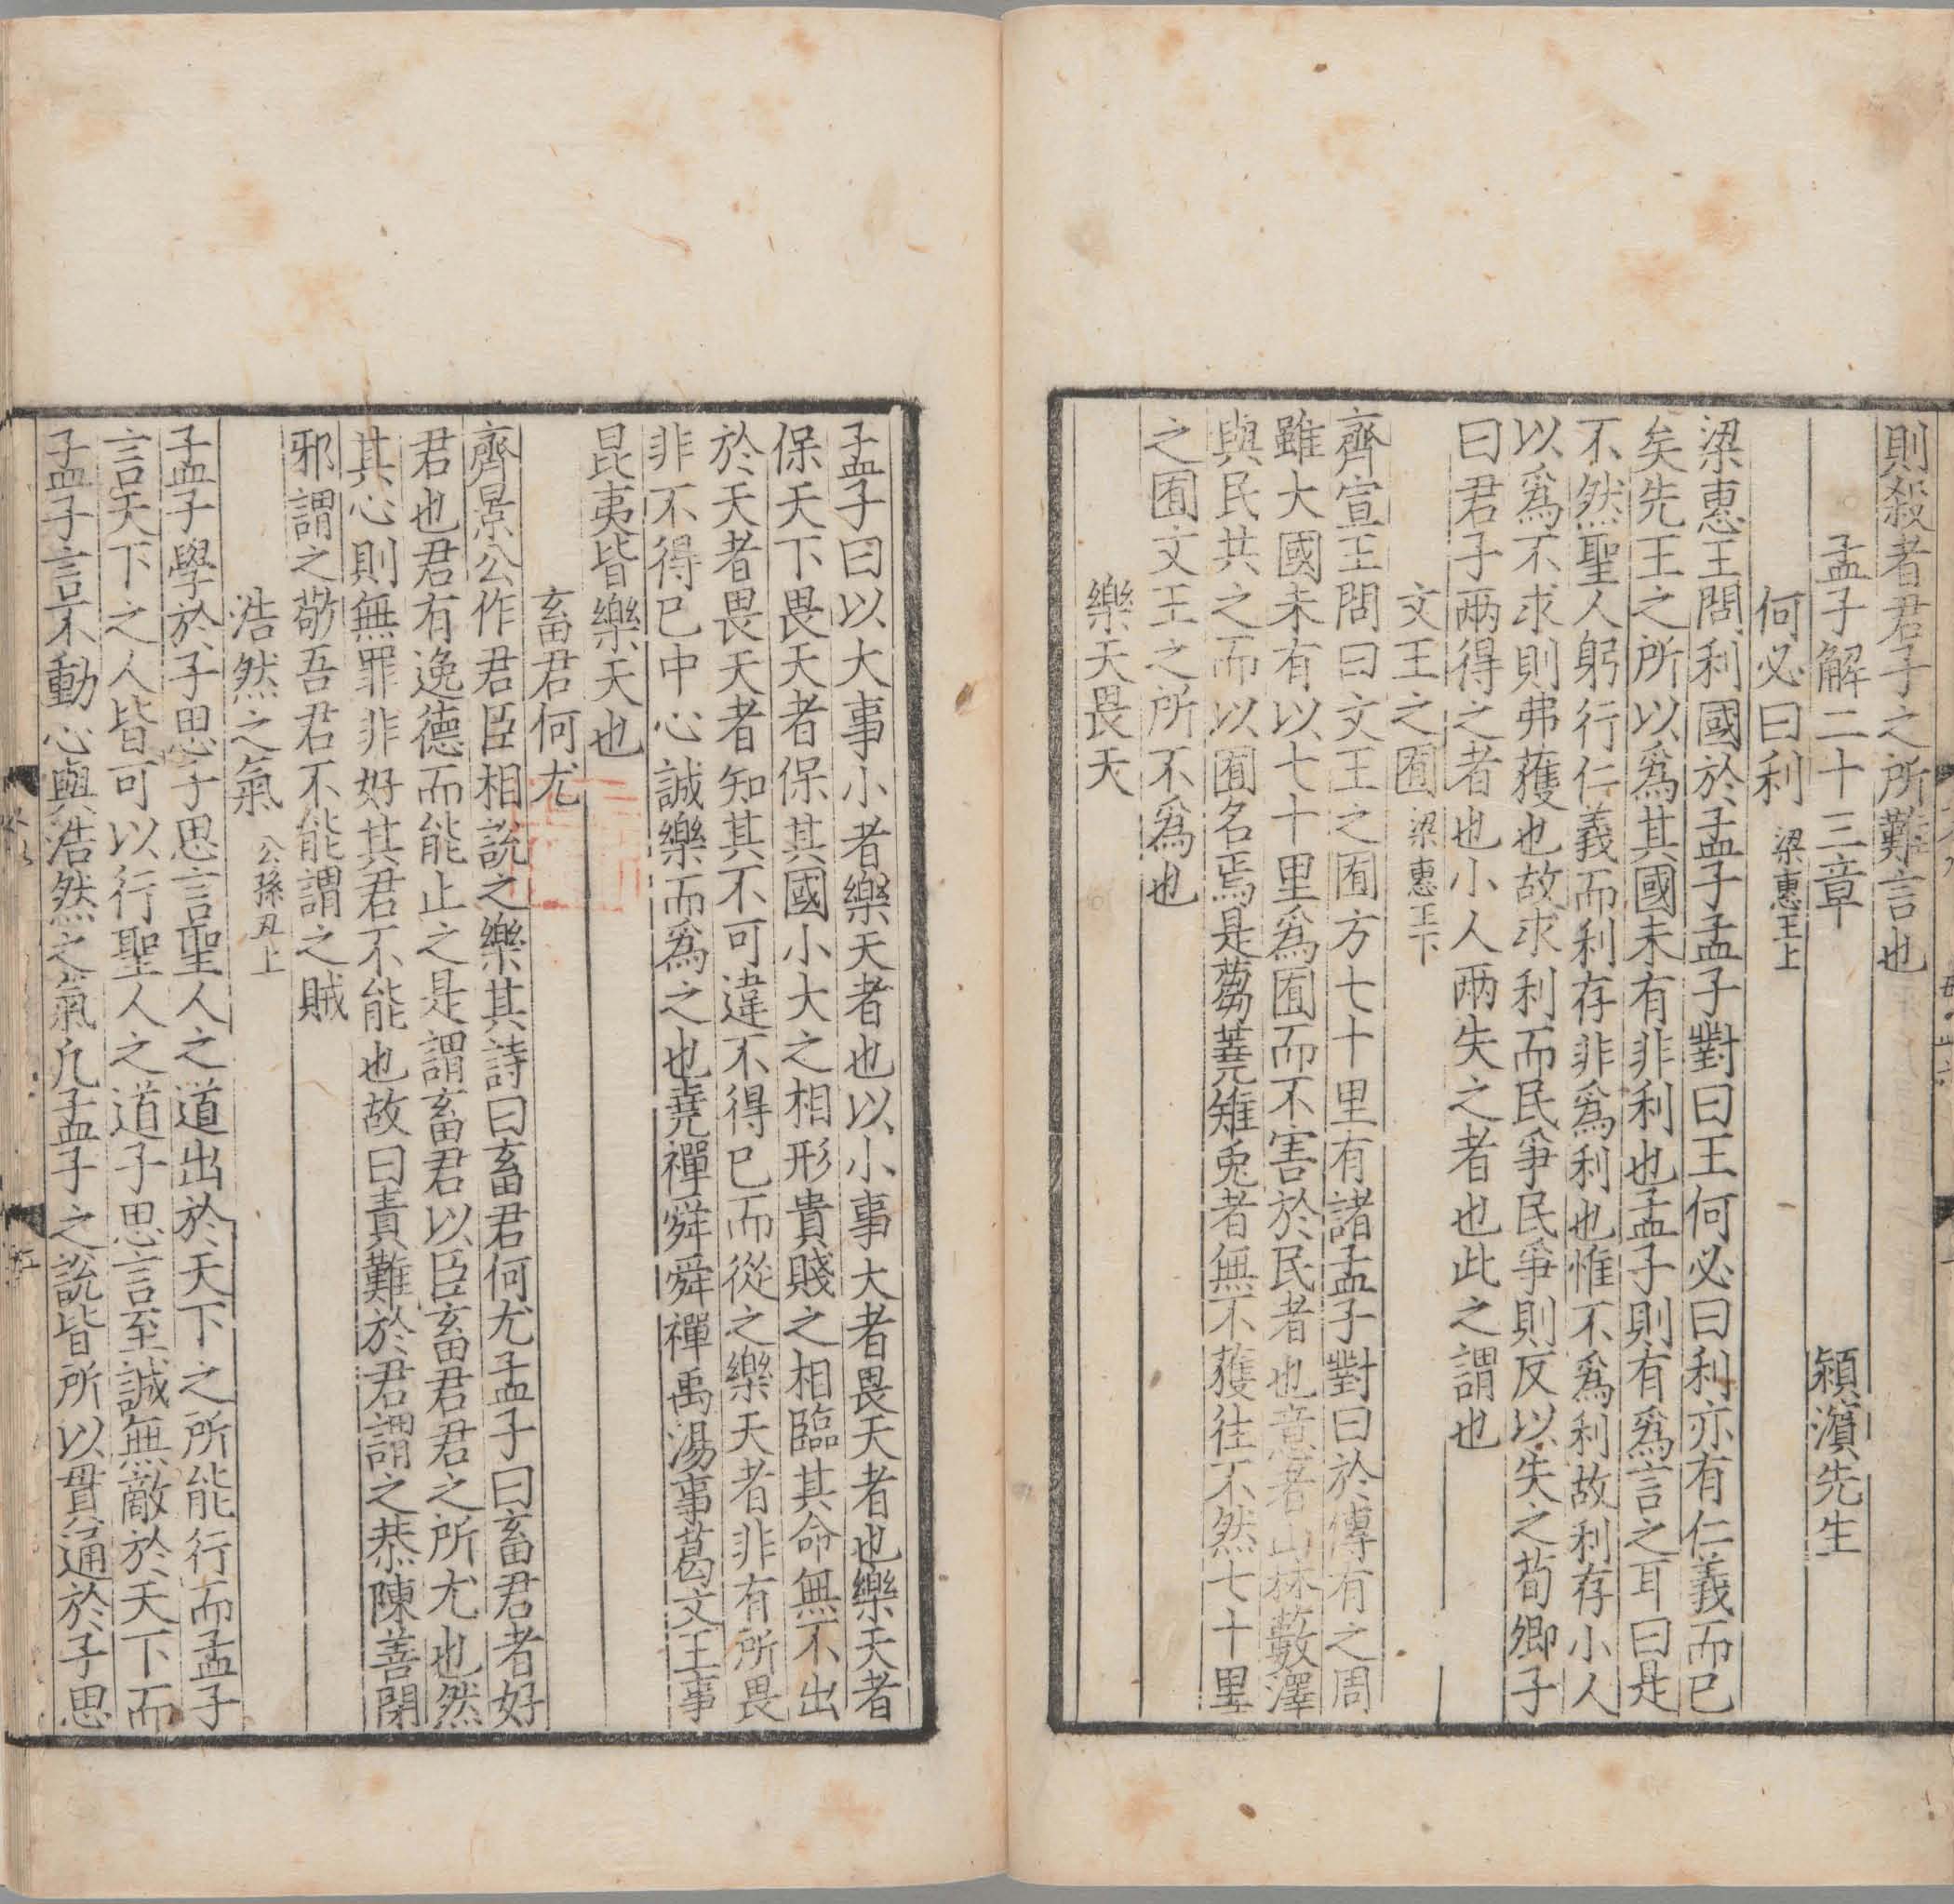 則殺者君子之所難言也
孟子解二十三章 潁濱先生
何必曰利 梁惠王上
梁惠王問利國於孟子孟子對曰王何必曰利亦有仁義而已
矣先王之所以爲其國未有非利也孟子則有爲言之耳曰是
不然聖人躬行仁義而利存非爲利也惟不爲利故利存小人
以爲不求則弗獲也故求利而民爭民爭則反以失之荀卿子
曰君子兩得之者也小人兩失之者也此之謂也
文王之囿 梁惠王下
齊宣王問曰文王之囿方七十里有諸孟子對曰於傳有之周
雖大國未有以七十里爲囿而不害於民者也意者山林藪澤
與民共之而以囿名焉是蒭蕘雉兎者無不獲往不然七十里
之囿文王之所不爲也
樂天畏天
孟子曰以大事小者樂天者也以小事大者畏天者也樂天者
保天下畏天者保其國小大之相形貴賤之相臨其命無不出
於天者畏天者知其不可違不得已而從之樂天者非有所畏
非不得已中心誠樂而爲之也堯禪舜舜禪禹湯事葛文王事
昆夷皆樂天也
畜君何尤
齊景公作君臣相說之樂其詩曰畜君何尤孟子曰畜君者好
君也君有逸德而能止之是謂畜君以臣畜君君之所尤也然
其心則無罪非好其君不能也故曰責難於君謂之恭陳善閉
邪謂之敬吾君不能謂之賊
浩然之氣 公孫丑上
孟子學於子思子思言聖人之道出於天下之所能行而孟子
言天下之人皆可以行聖人之道子思言至誠無敵於天下而
孟子言不動心與浩然之氣凡孟子之說皆所以貫通於子思